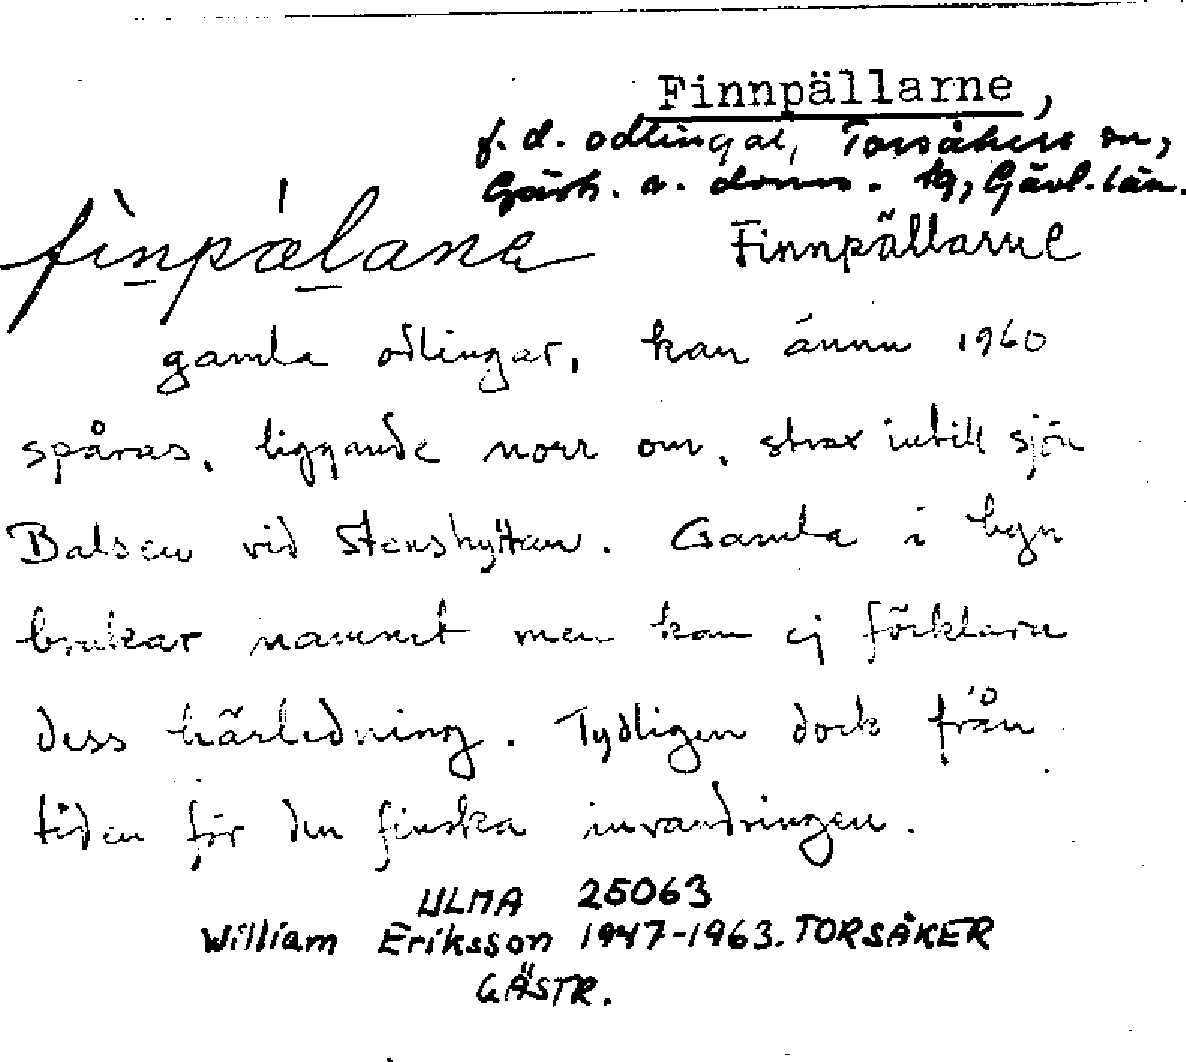 Finnpällarne,
f. d. odlingar, Torsåkers sn,
Gästr. ö. doms. tg, Gävl. län.
finpælane Finnpällarne
gamla odlingar, kan ännu 1960
spåras, liggande norr om, strax intill sjön
Balsen vid Stenshyttan. Gamla i byn
brukar namnet men kan ej förklara
dess härledning. Tydligen dock från
tiden för den finska invandringen.
ULMA 25063
William Eriksson 1947-1963. TORSÅKER
GÄSTR.